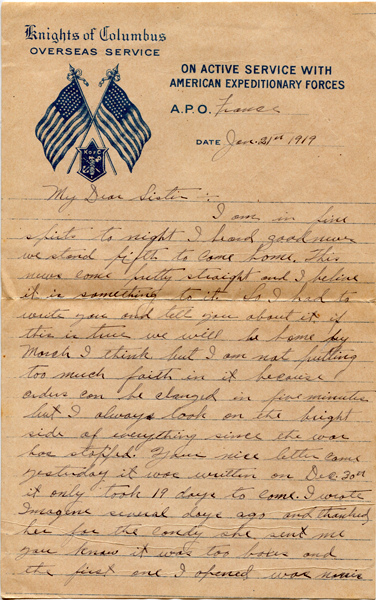 Knights of Columbus
OVERSEAS SERVICE
ON ACTIVE SERVICE WITH
AMERICAN EXPEDITIONARY FORCES
A.P.O. France
DATE Jan. 21st 1919
K of C
My Dear Sister:
I am in fine
spirits to night I heard good news
we stand fifth to come home. This
news come pretty straight and I believe
it is something to it. So I had to
write you and tell you about it if
this is true we will be home by
March I think but I am not putting
too much faith in it because
orders can be changed in five minutes
but I always look on the bright
side of everything since the war
has stopped. Your nice letter came
yesterday it was written on Dec. 30th
it only took 19 days to come. I wrote
Imogene several days ago and thanked
her for the candy she sent me
you know it was two boxes and
the first one I opened was